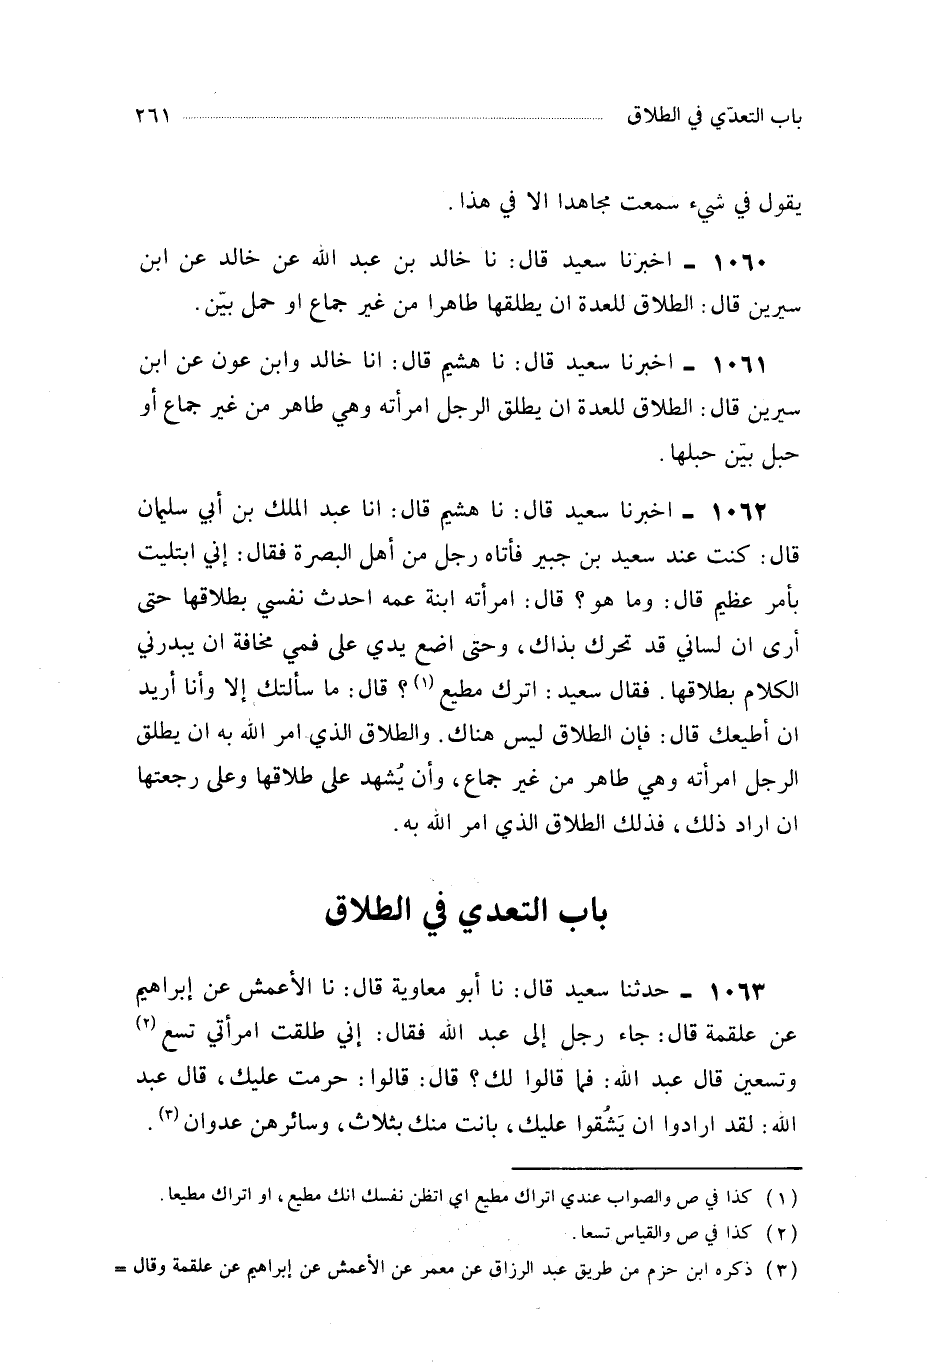 باب التعدّي في الطلاق ٢٦١
يقول في شيء سمعت مجاهدا الا في هذا .
١٠٦٠ ـ اخبرنا سعيد قال : نا خالد بن عبد الله عن خالد عن ابن
سيرين قال : الطلاق للعدة ان يطلقها طاهرا من غير جماع او حمل بيّن .
١٠٦١ ـ اخبرنا سعيد قال : نا هشيم قال : انا خالد وابن عون عن ابن
سيرين قال : الطلاق للعدة ان يطلق الرجل امرأته وهي طاهر من غير جماع أو
حبل بيّن حبلها .
١٠٦٢ ـ اخبرنا سعيد قال : نا هشيم قال : انا عبد الملك بن أبي سليمان
قال : كنت عند سعيد بن جبير فأتاه رجل من أهل البصرة فقال : إني ابتليت
بأمر عظيم قال : وما هو ؟ قال : امرأته ابنة عمه احدث نفسي بطلاقها حتى
أرى ان لساني قد تحرك بذاك ، وحتى اضع يدي على فمي مخافة ان يبدرني
الكلام بطلاقها . فقال سعيد : اترك مطيع (١) ؟ قال : ما سألتك إلا وأنا أريد
ان أطيعك قال : فإن الطلاق ليس هناك . والطلاق الذي امر الله به ان يطلق
الرجل امرأته وهي طاهر من غير جماع ، وأن يُشهد على طلاقها وعلى رجعتها
ان اراد ذلك ، فذلك الطلاق الذي امر الله به .
باب التعدي في الطلاق
١٠٦٣ ـ حدثنا سعيد قال : نا أبو معاوية قال : نا الأعمش عن إبراهيم
عن علقمة قال : جاء رجل إلى عبد الله فقال : إني طلقت امرأتي تسع (٢)
وتسعين قال عبد الله : فما قالوا لك ؟ قال : قالوا : حرمت عليك ، قال عبد
الله : لقد ارادوا ان يَشُقوا عليك ، بانت منك بثلاث ، وسائرهن عدوان (٣) .
(١) كذا في ص والصواب عندي اتراك مطيع اي اتظن نفسك انك مطيع ، او اتراك مطيعا .
(٢) كذا في ص والقياس تسعا .
(٣) ذكره ابن حزم من طريق عبد الرزاق عن معمر عن الأعمش عن إبراهيم عن علقمة وقال =